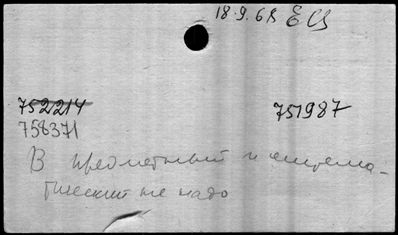 18.9.68 ЕЦ
752214 751987
758371
В предметный и система-
тический не надо